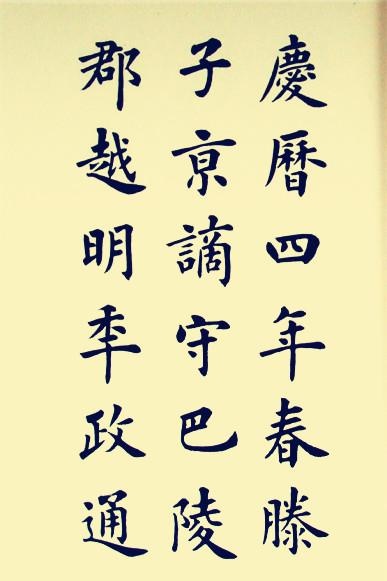 慶暦四年春滕
子亰謫守巴陵
郡越明秊政通